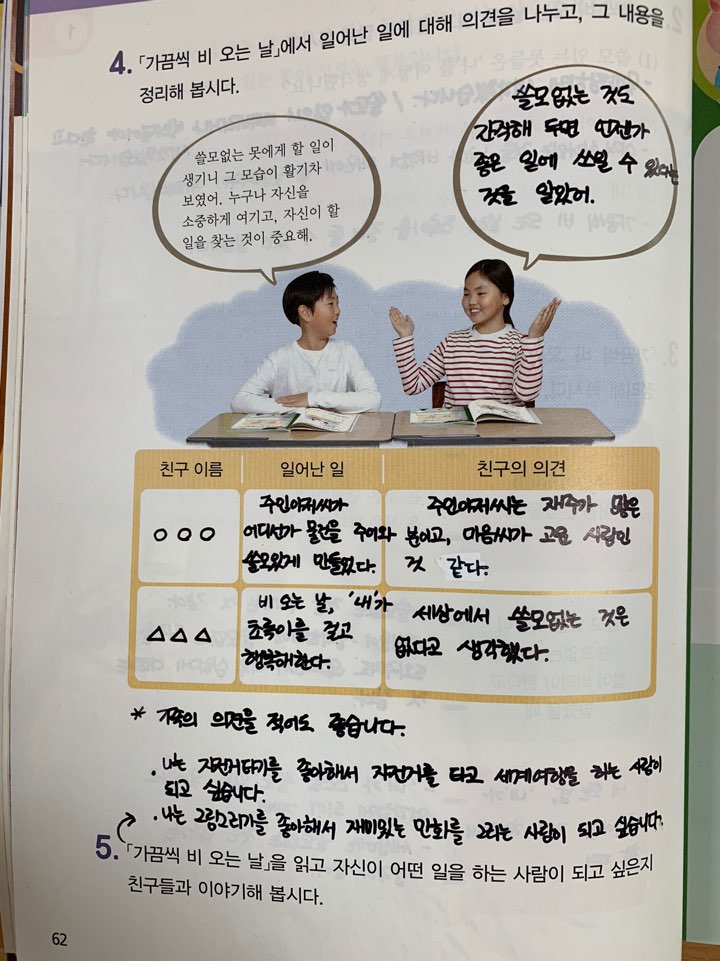 4. 「가끔씩 비 오는 날」에서 일어난 일에 대해 의견을 나누고, 그 내용을
정리해 봅시다.
쓸모없는 못에게 할 일이
생기니 그 모습이 활기차
보였어. 누구나 자신을
소중하게 여기고, 자신이 할
일을 찾는 것이 중요해.
쓸모없는 것도
간직해 두면 언젠가
좋은 일에 쓰일 수 있다는
것을 알았어.
친구 이름 일어난 일 친구의 의견
○ ○ ○
주인아저씨가
어디선가 물건을 주어와
쓸모있게 만들었다.
주인아저씨는 재주가 많은
분이고, 마음씨가 고운 사람인
것 같다.
△ △ △
비 오는 날, '내'가
초록이를 걸고
행복해한다.
세상에서 쓸모없는 것은
없다고 생각했다.
* 가족의 의견을 적어도 좋습니다.
· 나는 자전거타기를 좋아해서 자전거를 타고 세계여행을 하는 사람이
되고 싶습니다.
· 나는 그림그리기를 좋아해서 재미있는 만화를 그리는 사람이 되고 싶습니다.
5. 「가끔씩 비 오는 날」을 읽고 자신이 어떤 일을 하는 사람이 되고 싶은지
친구들과 이야기해 봅시다.
62